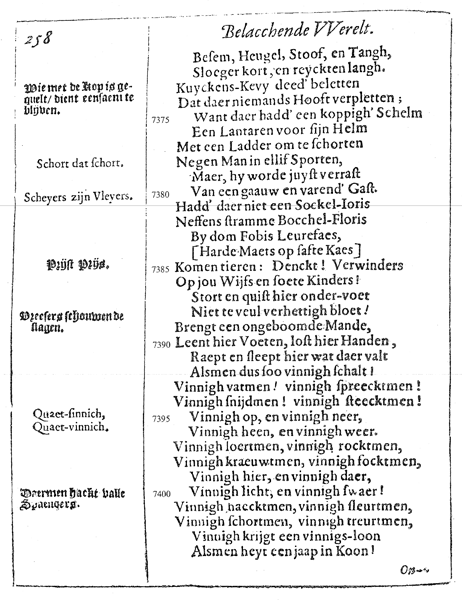 258
Belacchende VVerelt.
Besem, Heugel, Stoof, en Tangh,
Sloeger kort, en reyckten langh.
Wie met de Kop is ge-
quelt / dient eensaem te
blyven.
Kuyckens-Kevy deed' beletten
Dat daer niemands Hooft verpletten ;
7375 Want daer hadd' een koppigh' Schelm
Een Lantaren voor sijn Helm
Met een Ladder om te schorten
Schort dat schort.
Negen Man in ellif Sporten,
Maer, hy worde juyst verrast
Scheyers zijn Vleyers.
7380 Van een gaauw en varend' Gast.
Hadd' daer niet een Sockel-Ioris
Neffens stramme Bocchel-Floris
By dom Fobis Leurefaes,
[Harde Maets op safte Kaes]
Prijst Prijs.
7385 Komen tieren : Denckt ! Verwinders
Op jou Wijfs en soete Kinders !
Stort en quist hier onder-voet
Niet te veul verhettigh bloet !
Vreesers schouwen de
slagen.
Brengt een ongeboomde Mande,
7390 Leent hier Voeten, lost hier Handen,
Raept en sleept hier wat daer valt
Alsmen dus soo vinnigh schalt !
Vinnigh vatmen ! vinnigh spreecktmen !
Vinnigh snijdmen ! vinnigh steecktmen !
Quaet-sinnich,
Quaet-vinnich.
7395 Vinnigh op, en vinnigh neer,
Vinnigh heen, en vinnigh weer.
Vinnigh loertmen, vinnigh rocktmen,
Vinnigh kraeuwtmen, vinnigh focktmen,
Vinnigh hier, en vinnigh daer,
7400 Vinnigh licht, en vinnigh swaer !
hackt valle
Vinnigh haecktmen, vinnigh sleurtmen,
Vinnigh schortmen, vinnigh treurtmen,
Vinnigh krijgt een vinnigs-loon
Alsmen heyt een jaap in Koon !